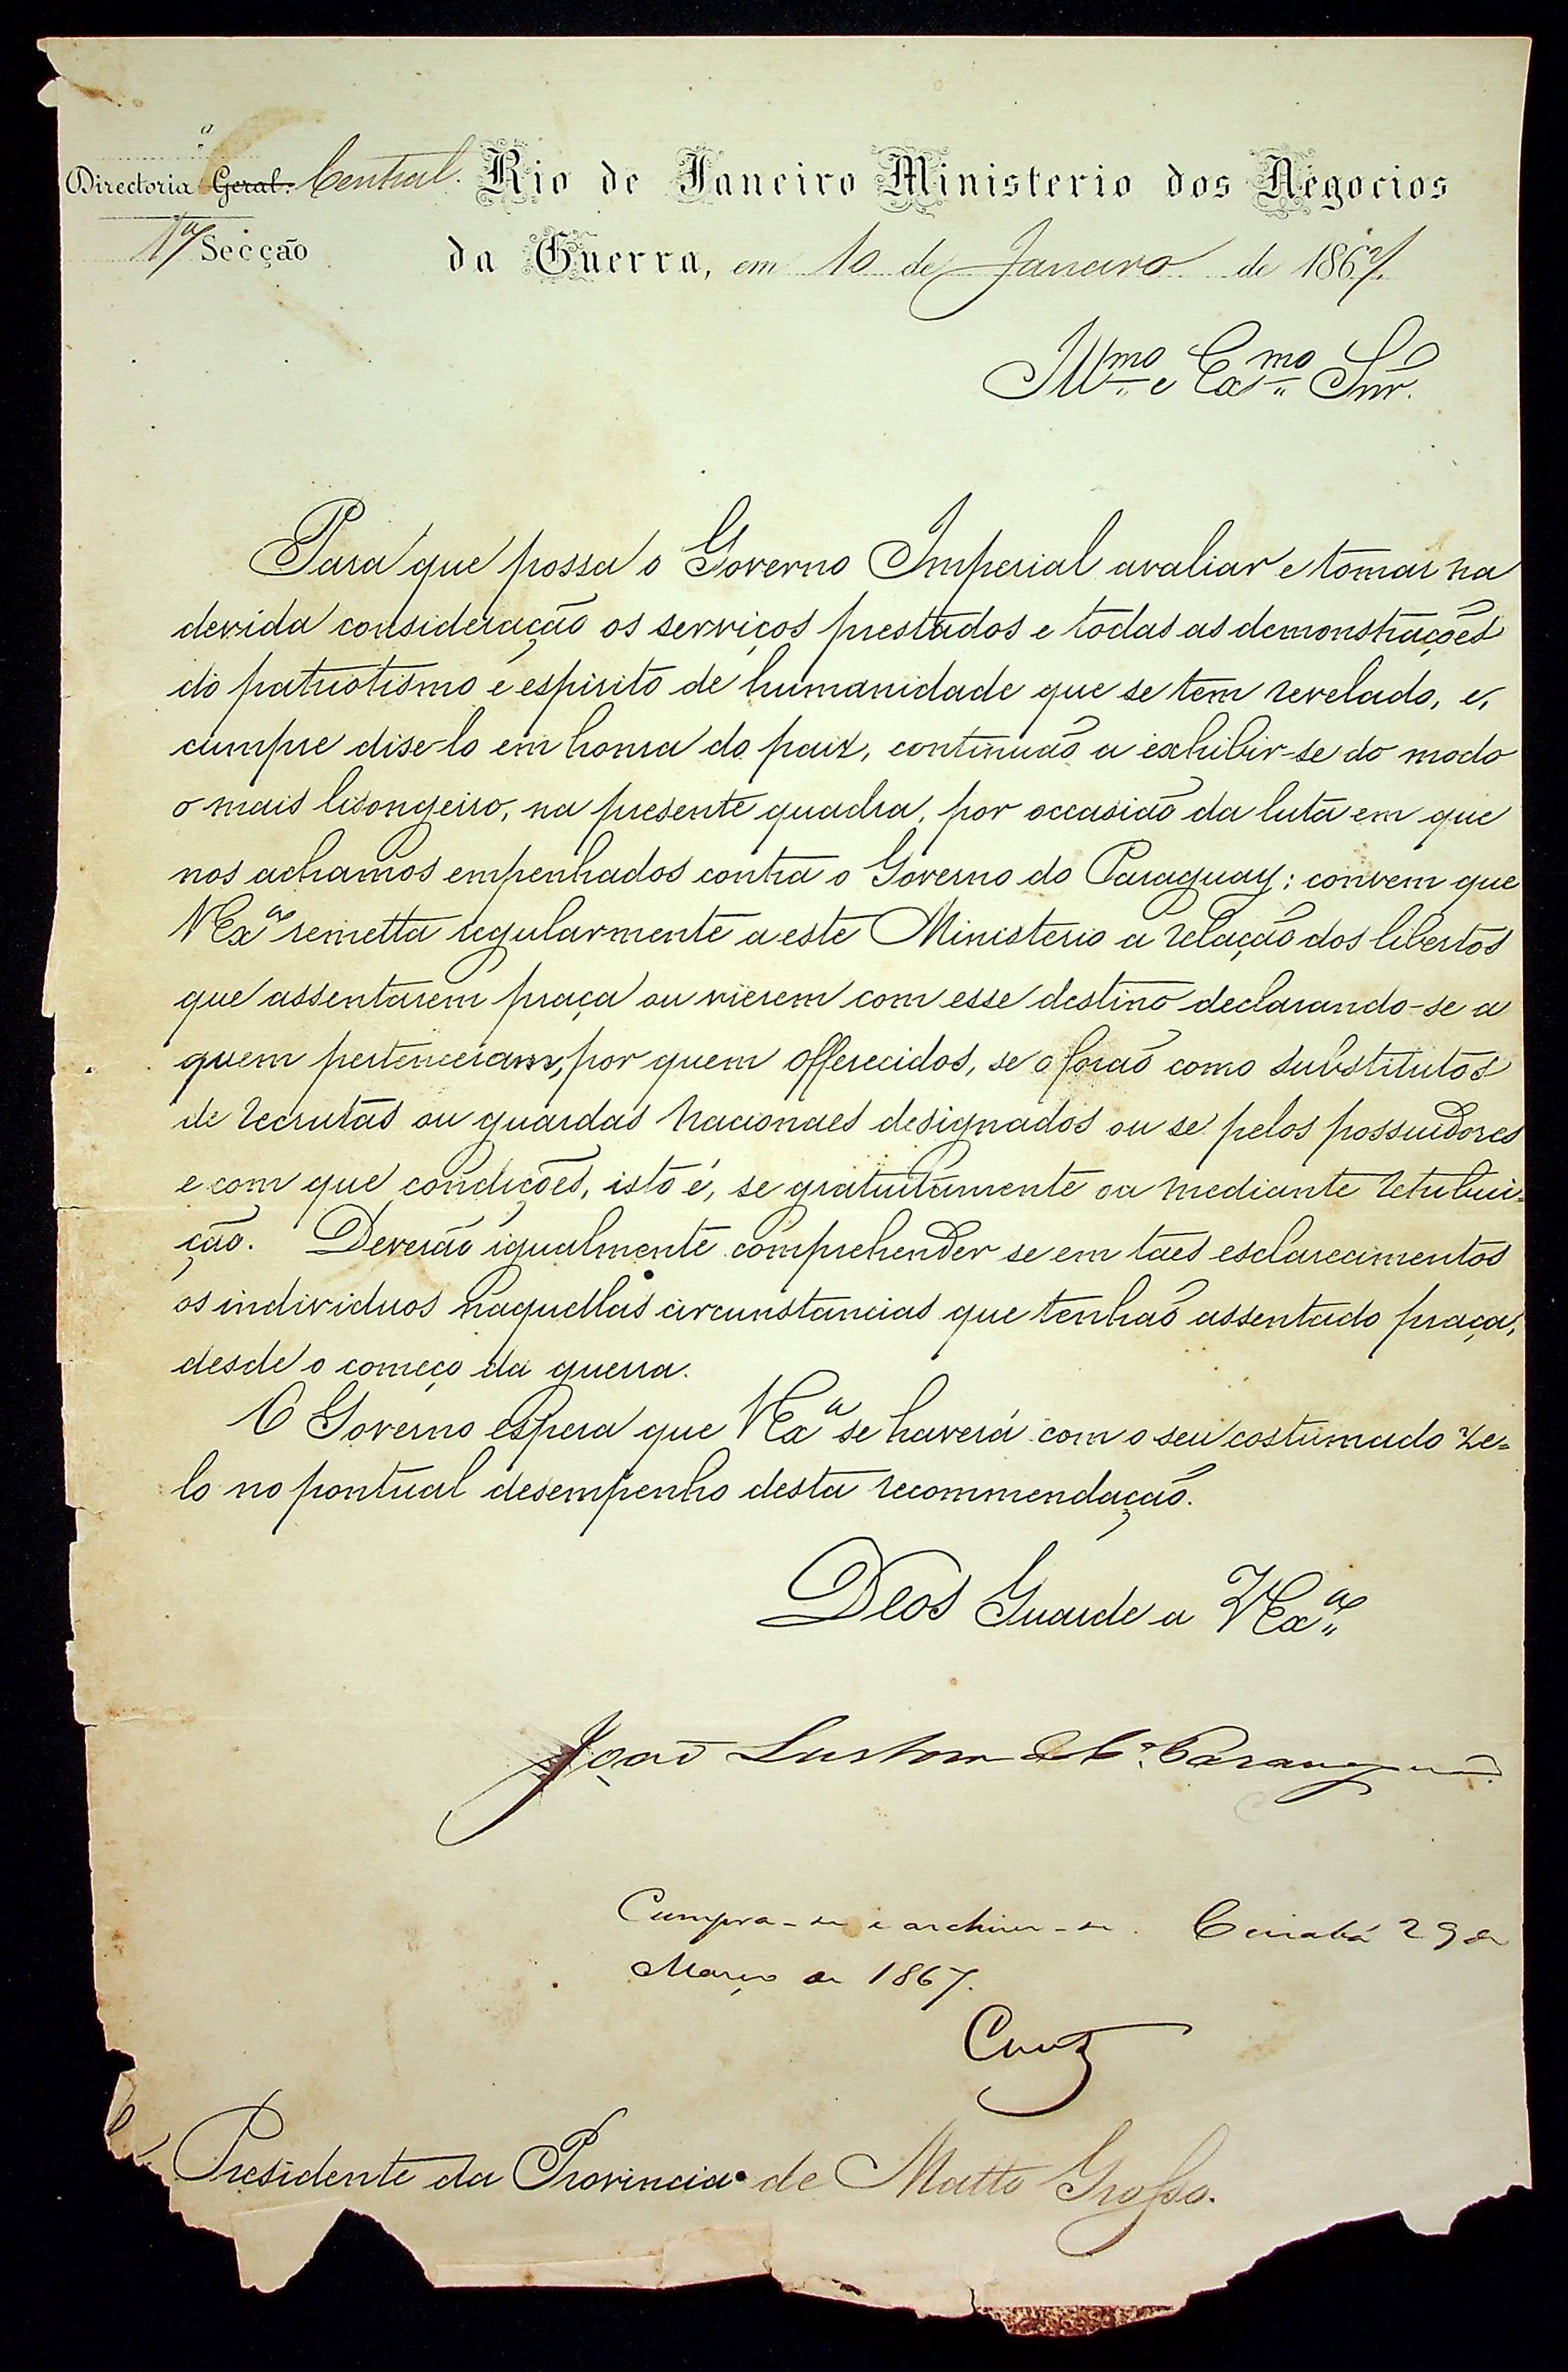 Directoria Geral. Central. Rio de Janeiro Ministerio dos Negocios
1ª Secção da Guerra, em 10 de Janeiro de 1867.
Illmo e Exmo Snr.
Para que possa o Governo Imperial avaliar e tomar na
devida consideração os serviços prestados e todas as demonstrações
do patriotismo e espirito de humanidade que se tem revelado, e,
cumpre dise-lo em honra do paiz, continuão a exhibir-se do modo
o mais lisongeiro, na presente quadra, por occasião da luta em que
nos achamos empenhados contra o Governo do Paraguay; convem que
VExª remetta regularmente a este Ministerio a relação dos libertos
que assentarem praça ou vierem com esse destino declarando-se a
quem pertenceram, por quem offerecidos, se o forão como substitutos
de recrutas ou guardas nacionaes designados ou se pelos possuidores
e com que condições, isto é, se gratuitamente ou mediante retribui=
ção. Deverão igualmente comprehender se em taes esclarecimentos
os individuos naquellas circunstancias que tenhão assentado praça,
desde o começo da guerra.
O Governo espera que VExª se haverá com o seu costumado ze=
lo no pontual desempenho desta recommendação.
Deos Guarde a VExª
João Lustosa da Cª Paranaguá.
Cumpra-se e archive-se. Cuiabá 29 de
Março de 1867.
Presidente da Provincia de Matto Grosso.